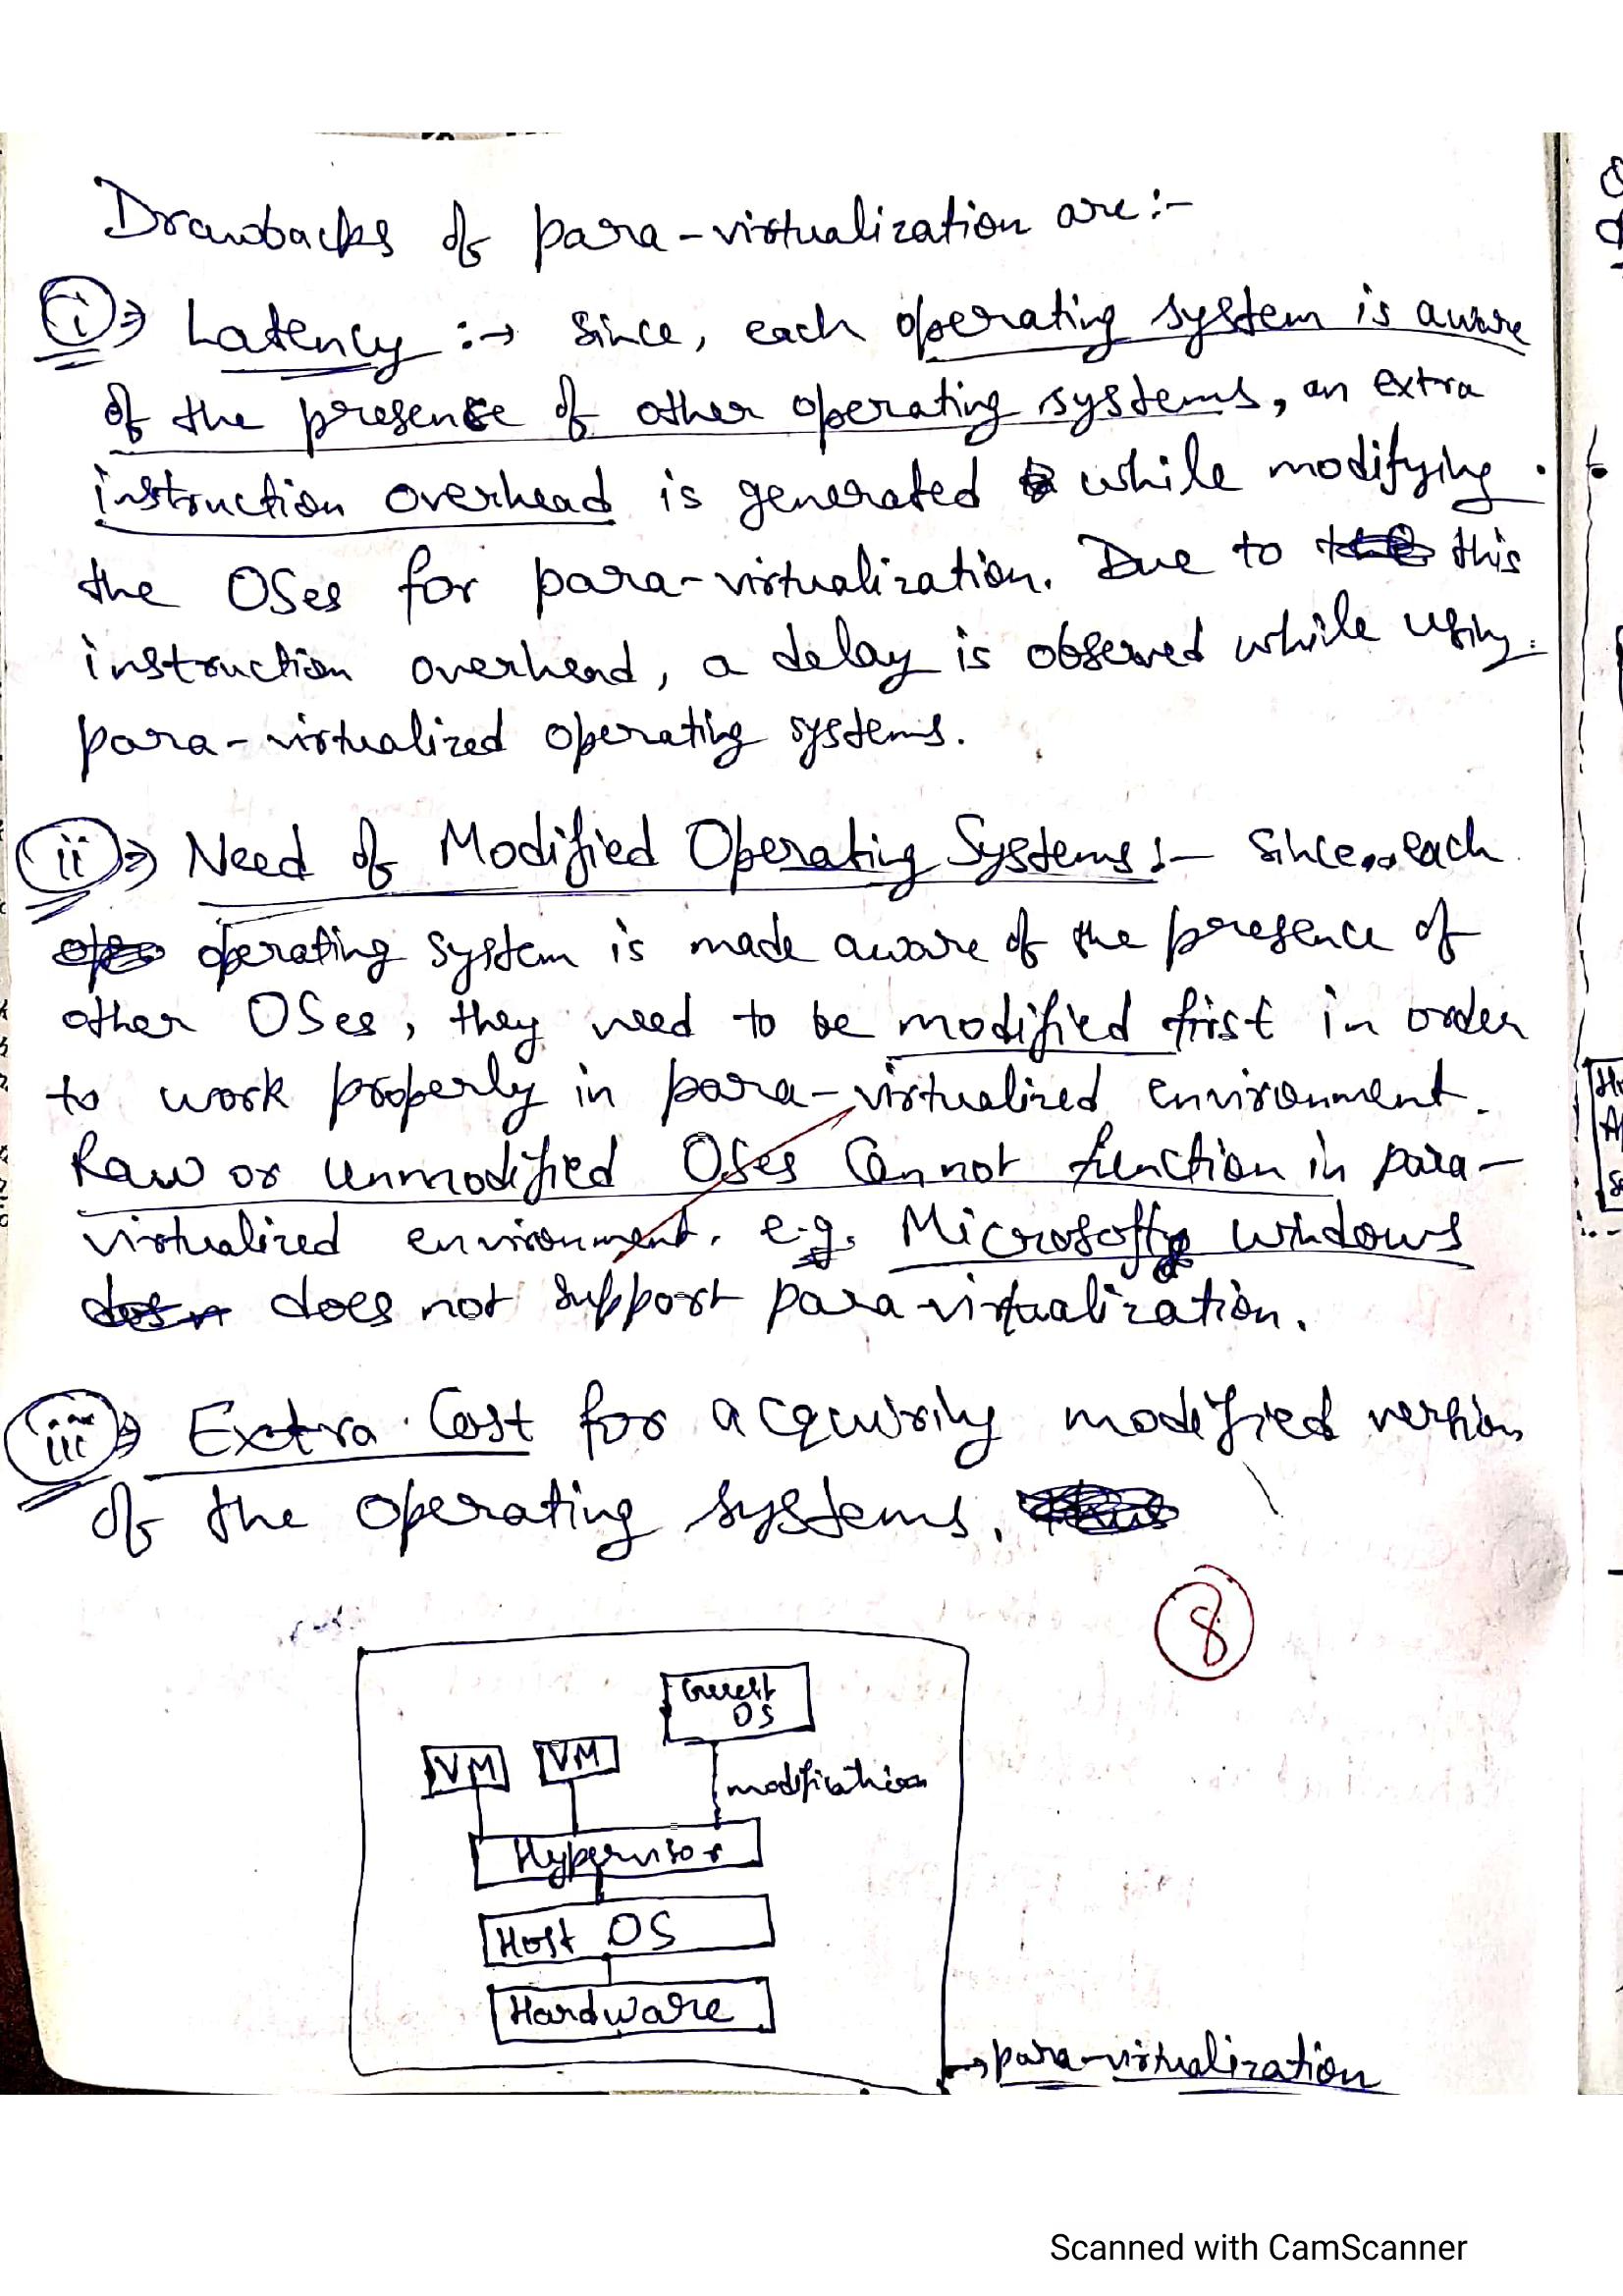 Drawbacks of para-virtualization are:-
(i)⇒ Latency :→ Since, each operating system is aware
of the presence of other operating systems, an extra
instruction overhead is generated while modifying
the OSes for para-virtualization. Due to this
instruction overhead, a delay is observed while using
para-virtualized operating systems.
(ii)⇒ Need of Modified Operating Systems:- Since, each
operating system is made aware of the presence of
other OSes, they need to be modified first in order
to work properly in para-virtualized environment.
Raw or unmodified OSes Cannot function in para-
virtualized environment. e.g. Microsoft Windows
does not support para-virtualization.
(iii)⇒ Extra Cost for acquiring modified version
of the operating systems.
8
Guest
OS
VM VM
modification
Hypervisor
Host OS
Hardware
→ para-virtualization
Scanned with CamScanner